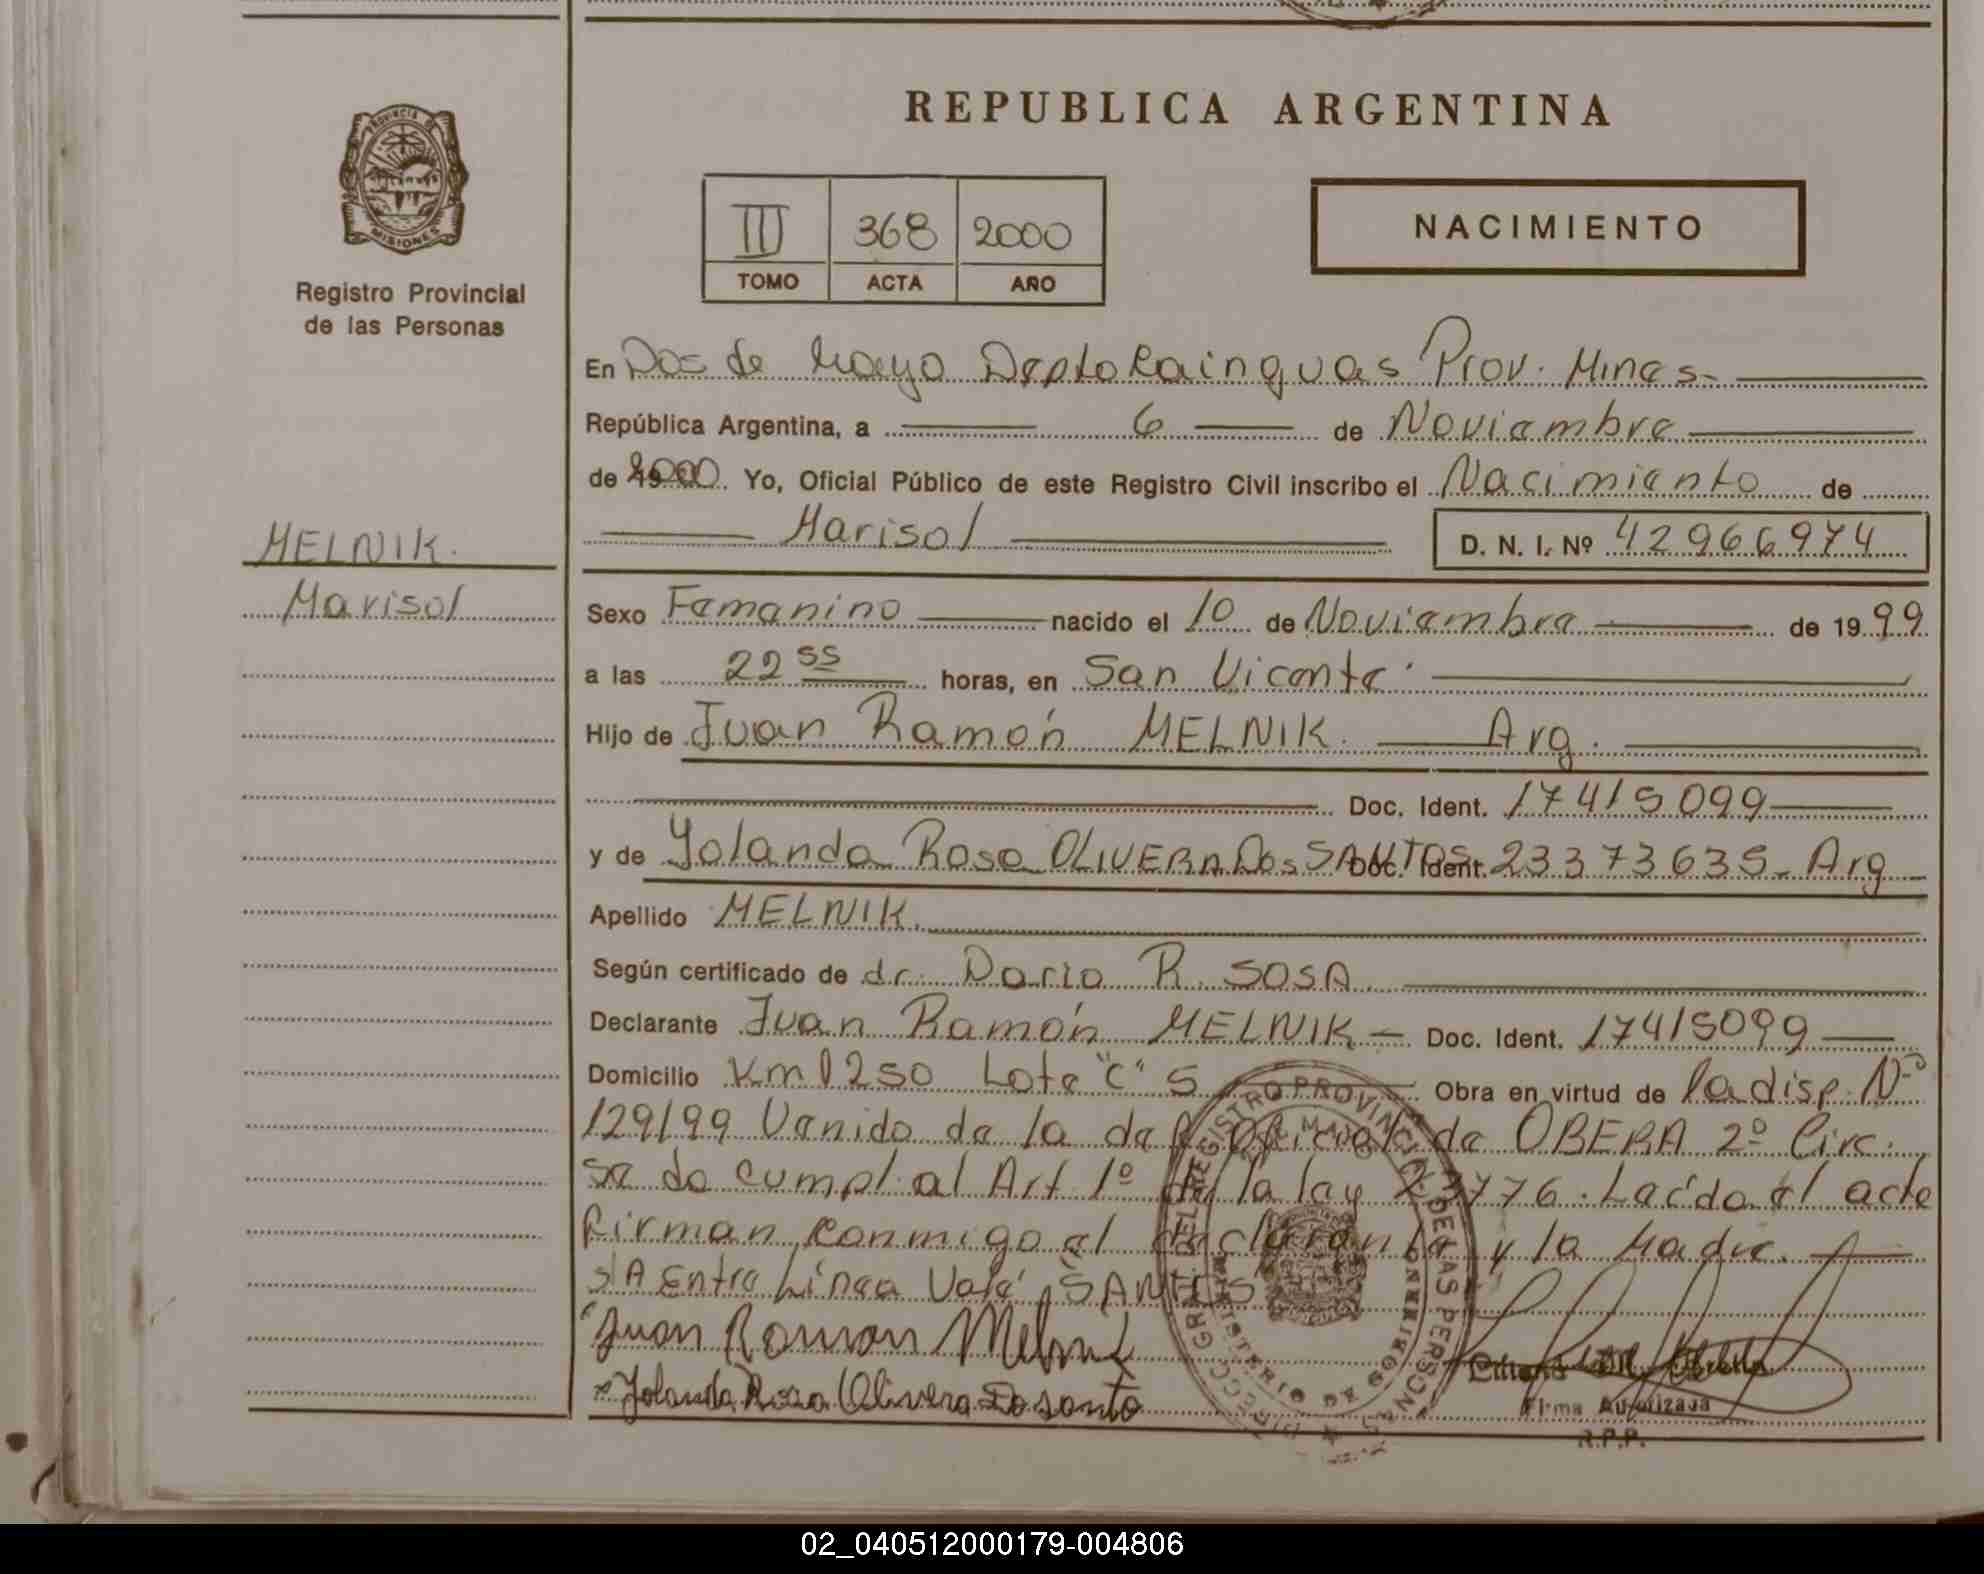 REPUBLICA ARGENTINA
PROVINCIA DE
MISIONES
Registro Provincial
de las Personas
III 368 2000
TOMO ACTA AÑO
NACIMIENTO
En Dos de Mayo Depto Cainguas Prov. Mnes.
República Argentina, a 6 de Noviembre
de 2000. Yo, Oficial Público de este Registro Civil inscribo el Nacimiento de
Marisol D. N. I. Nº 42966974
MELNIK.
Marisol
Sexo Femenino nacido el 10 de Noviembre de 1999
a las 22 55 horas, en San Vicente
Hijo de Juan Ramón MELNIK. Arg.
Doc. Ident. 17415099
y de Yolanda Rosa OLIVERA DOS SANTOS Doc. Ident. 23373635 - Arg
Apellido MELNIK.
Según certificado de dr. Dario R. SOSA
Declarante Juan Ramón MELNIK - Doc. Ident. 17415099
Domicilio Km 1250 Lote "C" 5 Obra en virtud de la disp. Nº
129/99 Venido de la def. oficial de OBERA 2º Circ.
se da cumpl. al Art 1º de la ley 2.776. Leída el acta
firman conmigo el declarante y la Madre.
s/A Entre Línea Vale SANTOS
Juan Roman Melnik
Yolanda Rosa Olivera Do santo
Firma Autorizada
R.P.P.
REGISTRO PROVINCIAL DE LAS PERSONAS
MINISTERIO DE GOBIERNO
02_040512000179-004806